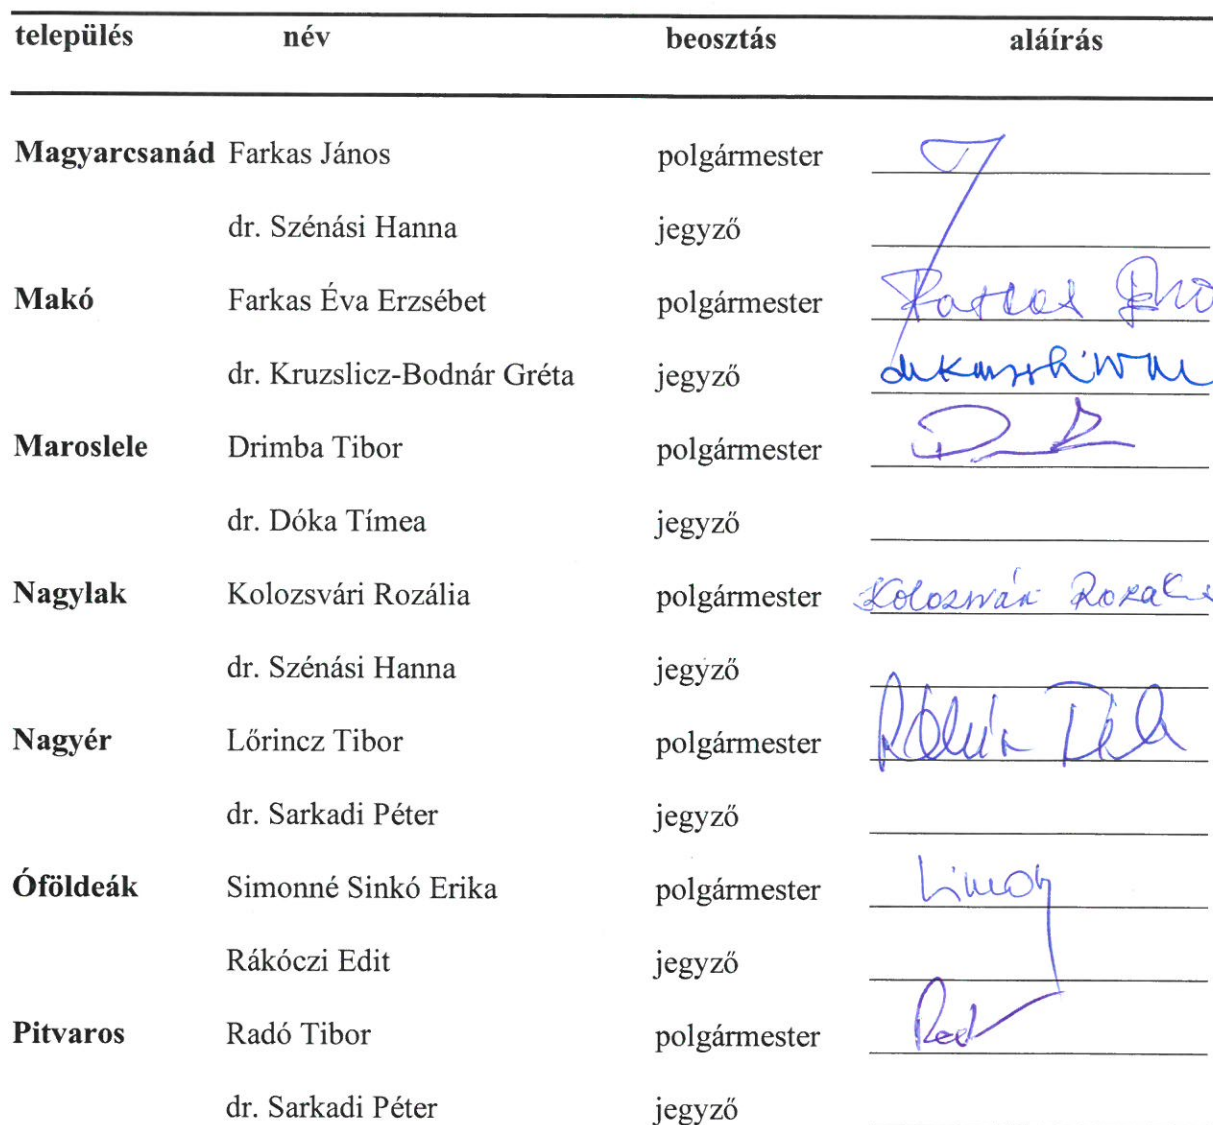 település név beosztás aláírás
Magyarcsanád Farkas János polgármester
dr. Szénási Hanna jegyző
Makó Farkas Éva Erzsébet polgármester
dr. Kruzslicz-Bodnár Gréta jegyző
Maroslele Drimba Tibor polgármester
dr. Dóka Tímea jegyző
Nagylak Kolozsvári Rozália polgármester Kolozsvári Rozália
dr. Szénási Hanna jegyző
Nagyér Lőrincz Tibor polgármester
dr. Sarkadi Péter jegyző
Óföldeák Simonné Sinkó Erika polgármester
Rákóczi Edit jegyző
Pitvaros Radó Tibor polgármester
dr. Sarkadi Péter jegyző